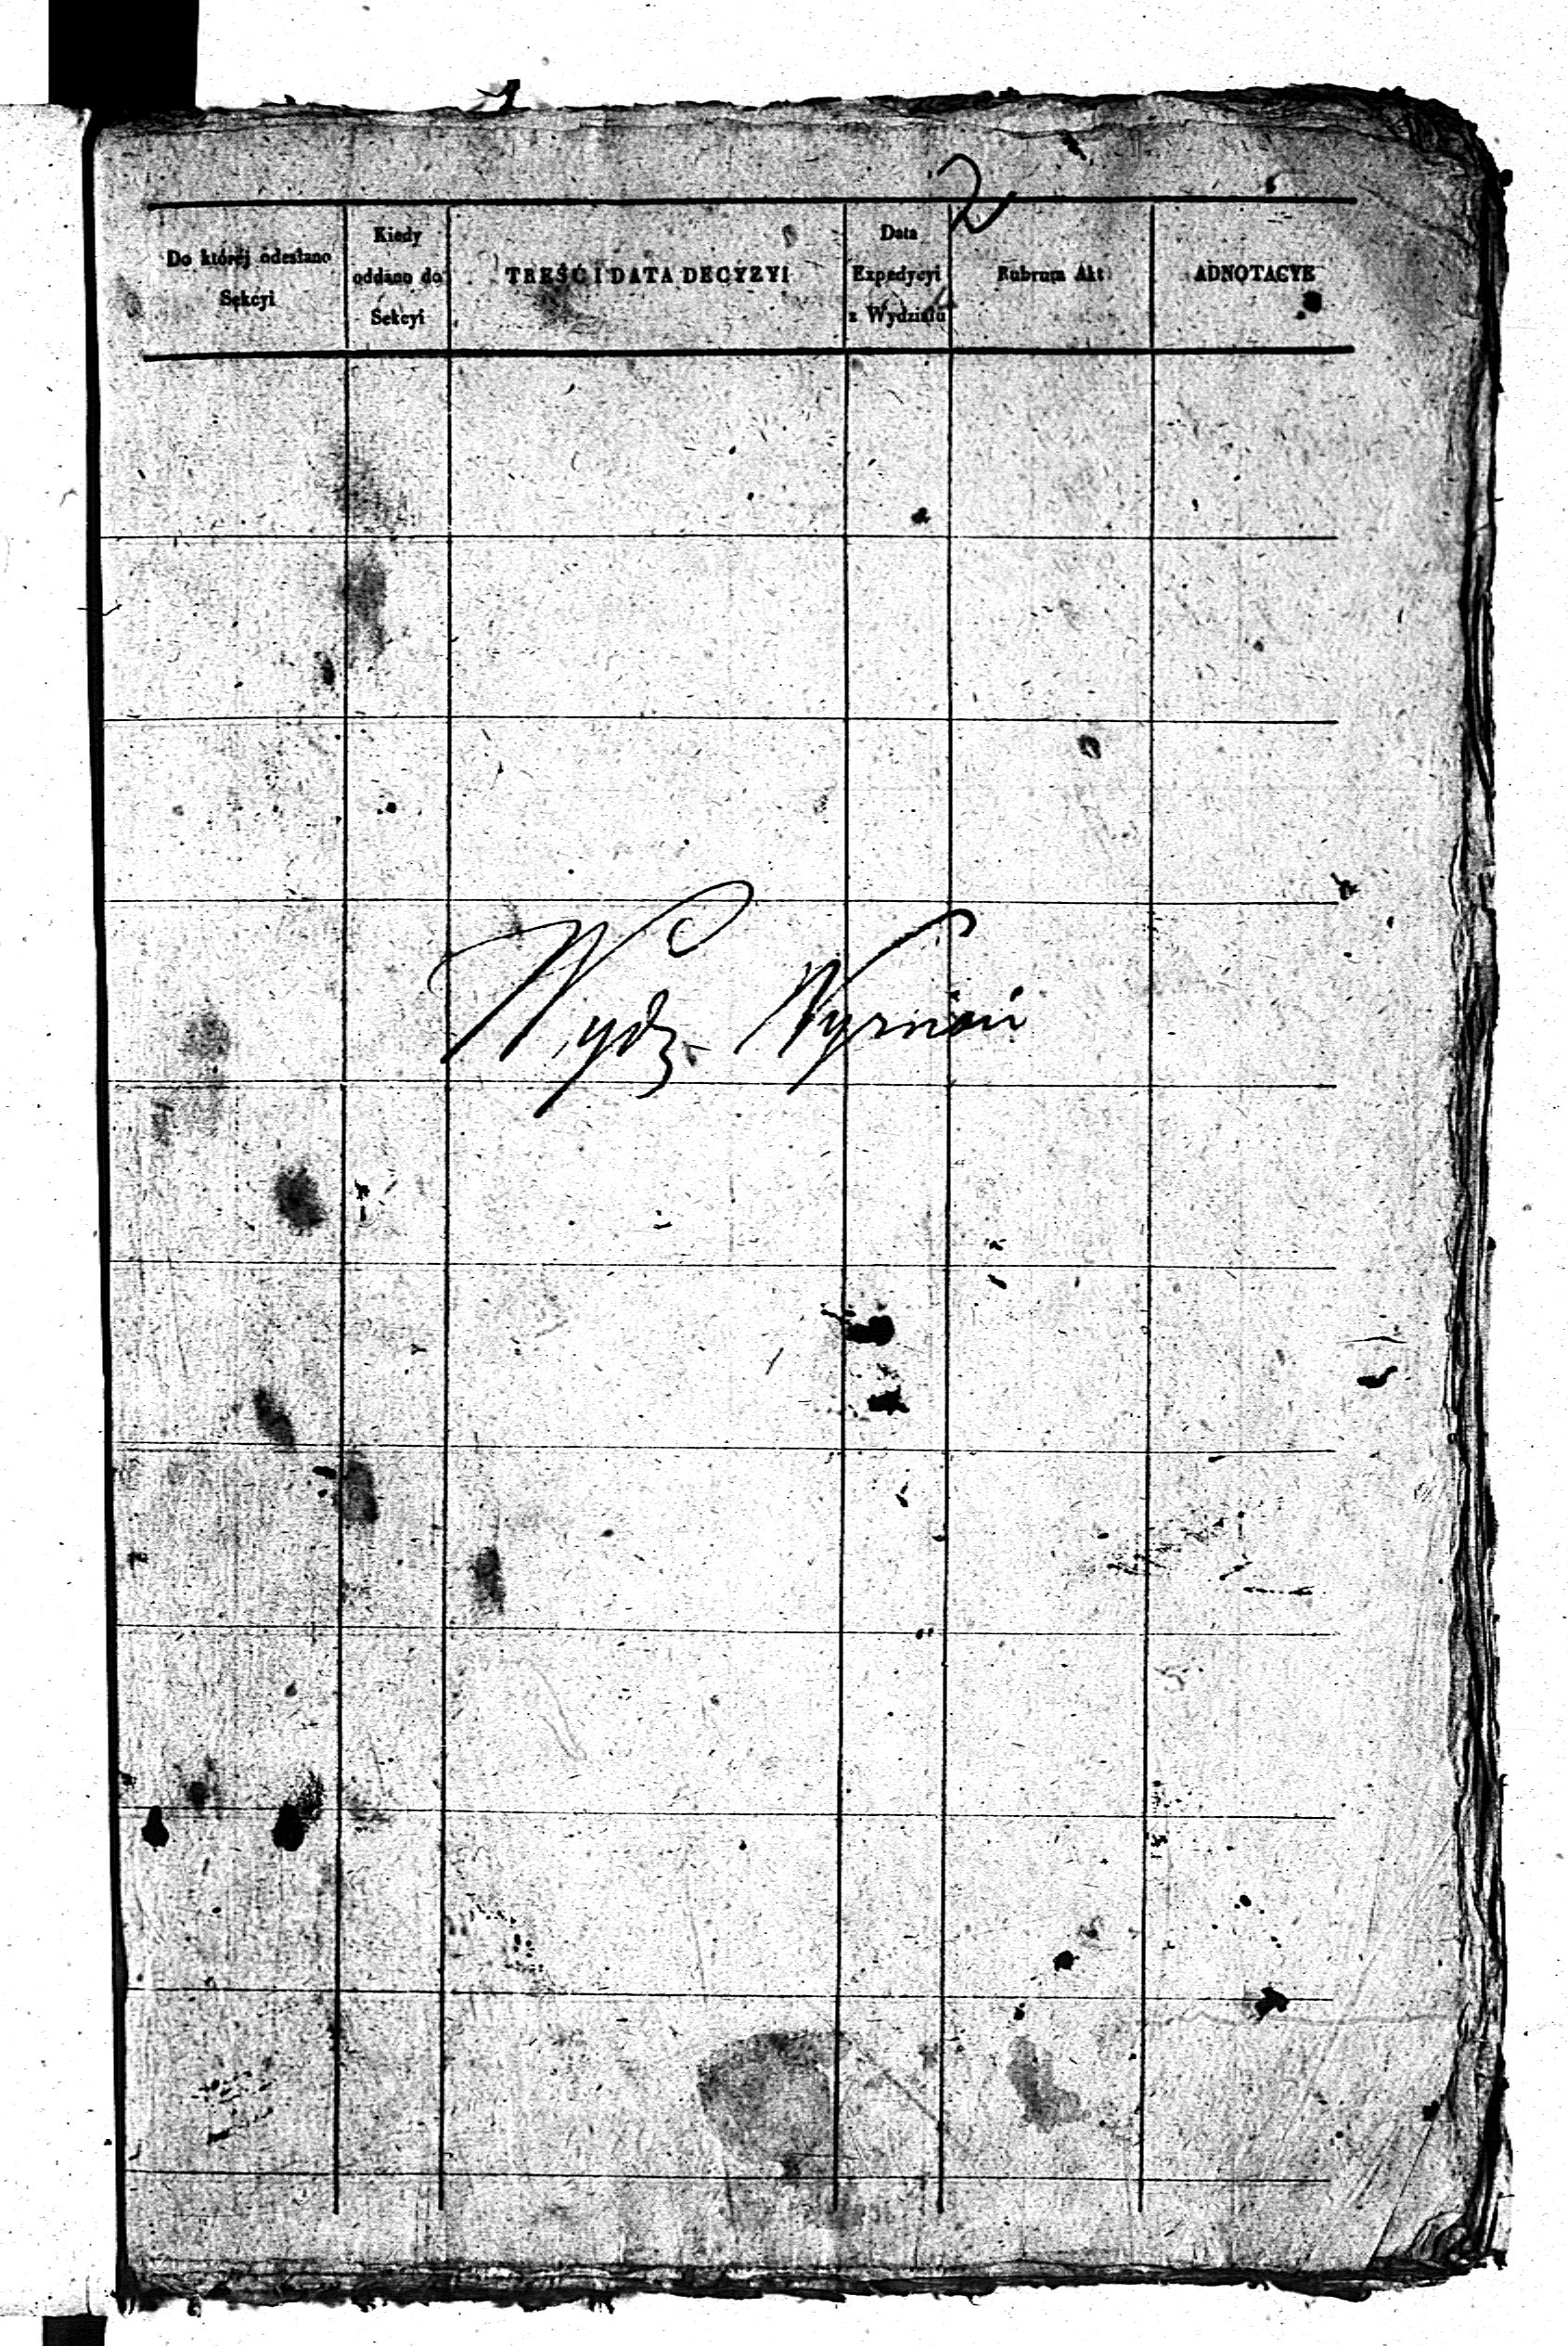 2
Do któréj odesłano
Sekcyi
Kiedy
oddano do
Sekcyi
TREŚĆ I DATA DECYZYI
Data
Expedycyi
z Wydziału
Rubrum Akt
ADNOTACYE
Wydz. Wyznań